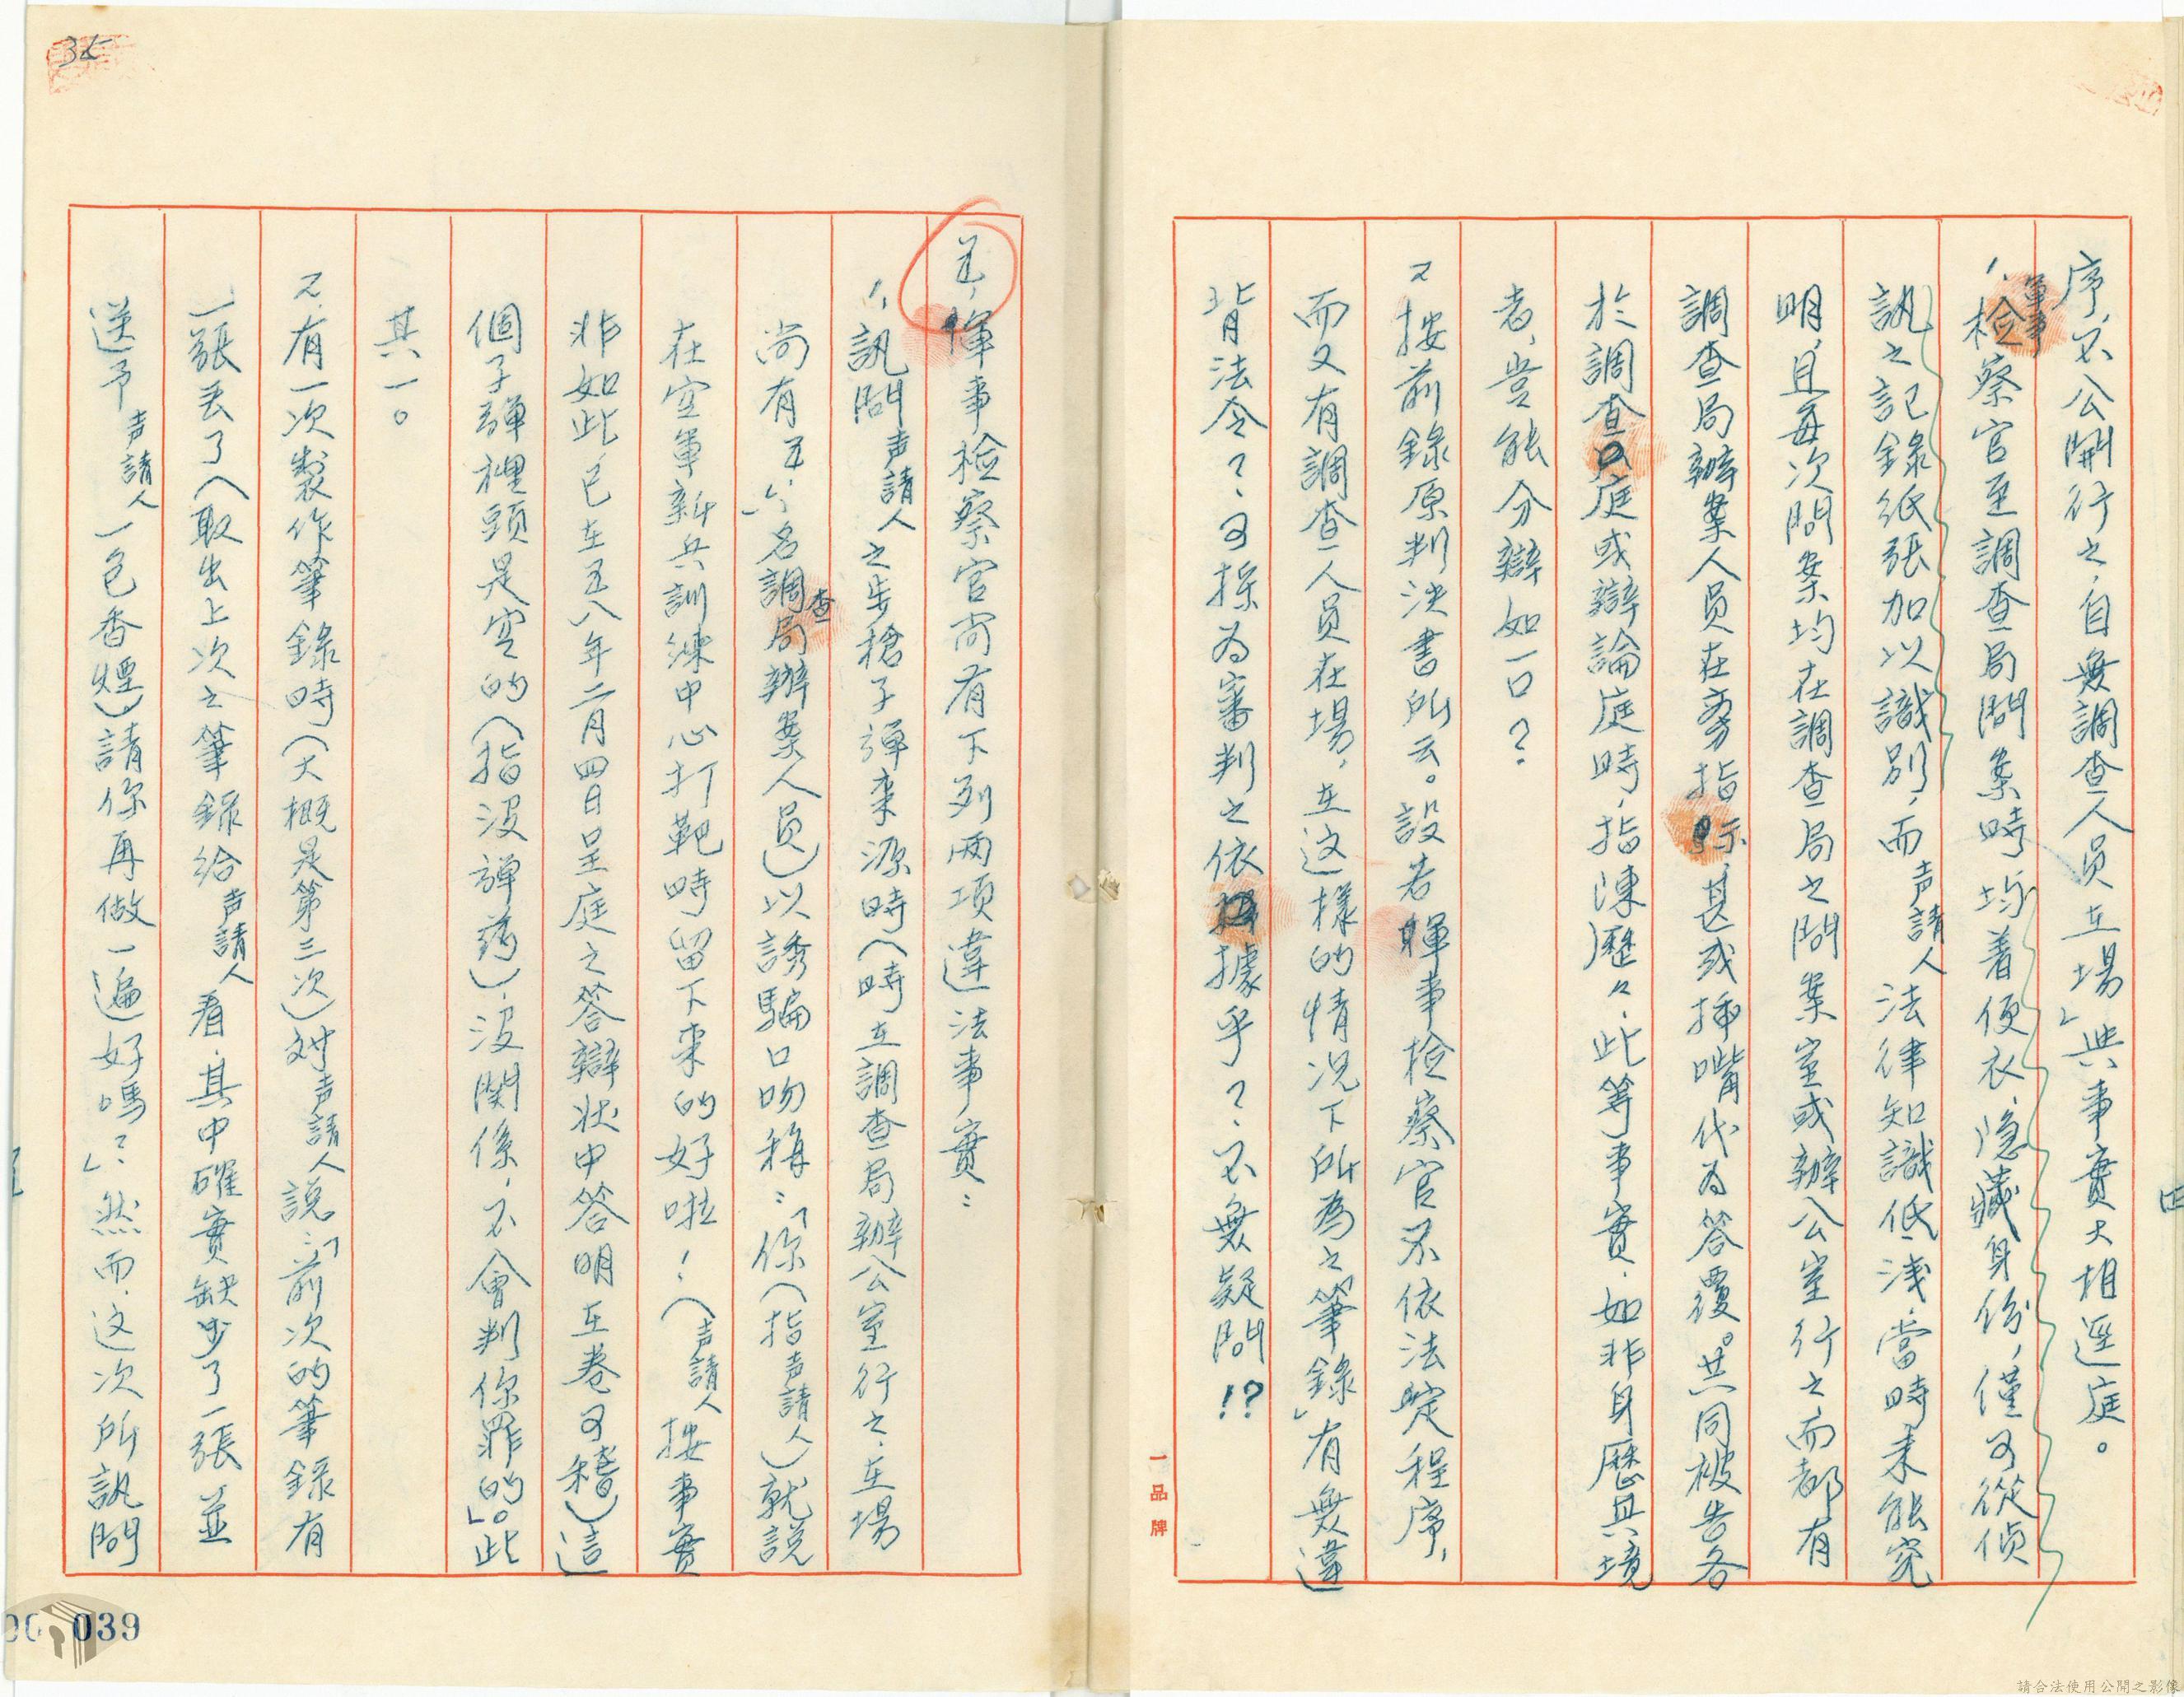 序,不公開行之,自無調查人員在場」與事實大相逕庭。
1.軍事檢察官至調查局問案時均着便衣、隱藏身份,僅可從偵
訊之記錄紙張加以識別,而声請人法律知識低淺,當時未能究
明,且每次問案均在調查局之問案室或辦公室行之,而都有
調查局辦案人員在旁指示,甚或插嘴代為答覆。共同被告各
於調查庭或辯論庭時,指陳歷々,此等事實,如非身歷其境
者,豈能分辯如一口?
2.按前錄原判決書所云。設若軍事檢察官不依法定程序,
而又有調查人員在場,在这樣的情况下所為之「筆錄」有無違
背法令?、可採為審判之依據乎?、不無疑問!?
一品牌
35
五,軍事檢察官尚有下列兩項違法事實:
1、訊問声請人之步槍子彈來源時(時在調查局辦公室行之,在場
尚有五、六名調查局辦案人員)以誘騙口吻稱:「你(指声請人)就說
在空軍新兵訓練中心打靶時留下來的好啦!(声請人按事實
非如此,已在五八年二月四日呈庭之答辯狀中答明在卷可稽)這
個子彈裡頭是空的(指没彈葯),没関係,不會判你罪的」。此
其一。
2.有一次製作筆錄時(大概是第三次)对声請人說:「前次的筆錄有
一張丟了(取出上次之筆錄給声請人看,其中確實缺少了一張並
送予声請人一包香煙)請你再做一遍好嗎?」然而,这次所訊問
039
請合法使用公開之影像